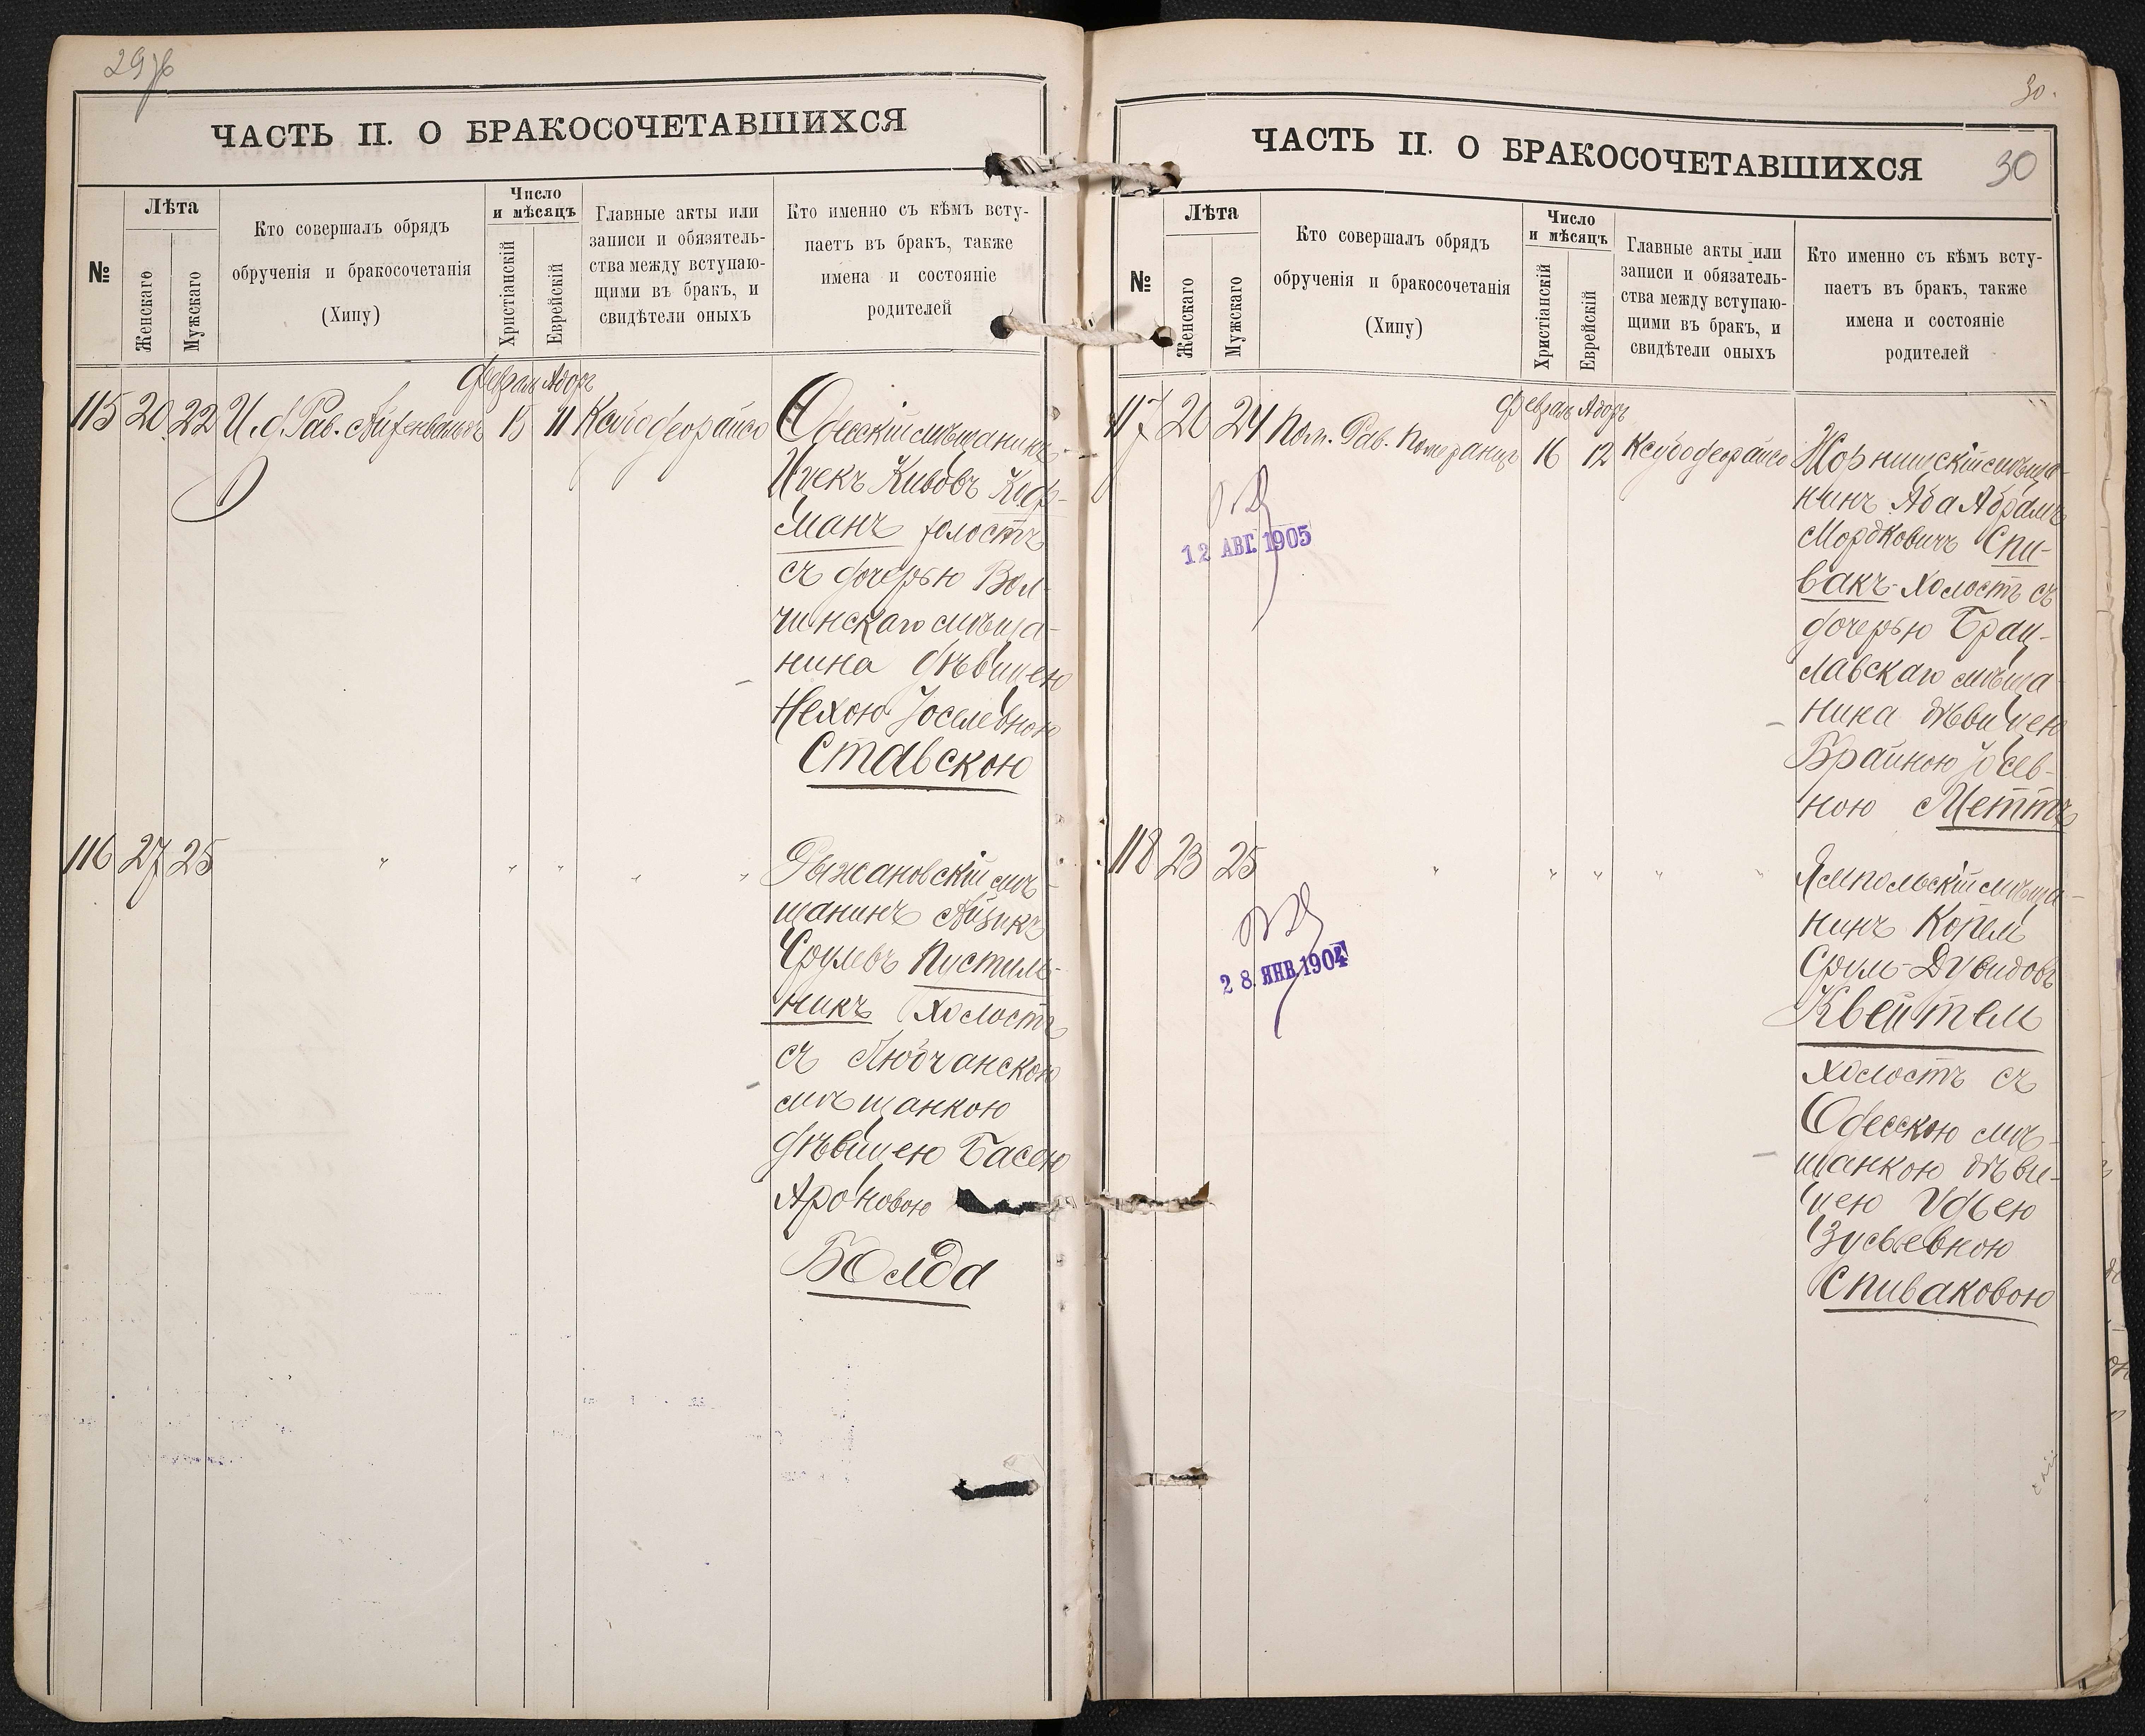 29
ЧАСТЬ II. О БРАКОСОЧЕТАВШИХСЯ
№
Лѣта
Женскаго
Мужскаго
Кто совершалъ обрядъ
обрученія и бракосочетанія
(Хипу)
Число
и мѣсяцъ
Христіанскій
Еврейскій
Главные акты или
записи и обязятель-
ства между вступаю-
щими въ бракъ, и
свидѣтели оныхъ
Кто именно съ кѣмъ всту-
паетъ въ бракъ, также
имена и состояніе
родителей
Февраль Адоръ
115 20 22 И. д. Рав. 15 11
Одесскій мѣщанинъ
Ицекъ Кивовъ Коф-
манъ холостъ
съ дочерью Вол-
чинскаго мѣща-
нина дѣвицею
Нехою Іоселевною
Ставскою
116 27 25 " " " " "
Рыжановскій мѣ-
щанинъ Айзикъ
Срулевъ Пустиль-
никъ холостъ
съ Любчанскою
мѣщанкою
дѣвицею Басею
Ароновою
Болда
30.
ЧАСТЬ II. О БРАКОСОЧЕТАВШИХСЯ
30
№
Лѣта
Женскаго
Мужскаго
Кто совершалъ обрядъ
обрученія и бракосочетанія
(Хипу)
Число
и мѣсяцъ
Христіанскій
Еврейскій
Главные акты или
записи и обязатель-
ства между вступаю-
щими въ бракъ, и
свидѣтели оныхъ
Кто именно съ кѣмъ всту-
паетъ въ бракъ, также
имена и состояніе
родителей
Февраль Адоръ
117 20 24 Пом. Рав. Померанцъ 16 12
Жорнищскій мѣща-
нинъ Аба Абрамъ
Мордковичъ Спи-
вакъ холостъ съ
дочерью Брац-
лавскаго мѣща-
нина дѣвицею
Брайною Іосев-
ною Меттъ
12 АВГ. 1905
118 23 25 " " " " "
Ямпольскій мѣща-
нинъ Копель
Сруль-Дувидовъ
Квейтель
холостъ съ
Одесскою мѣ-
щанкою дѣви-
цею Удьею
Зусьевною
Спиваковою
28. ЯНВ. 1904